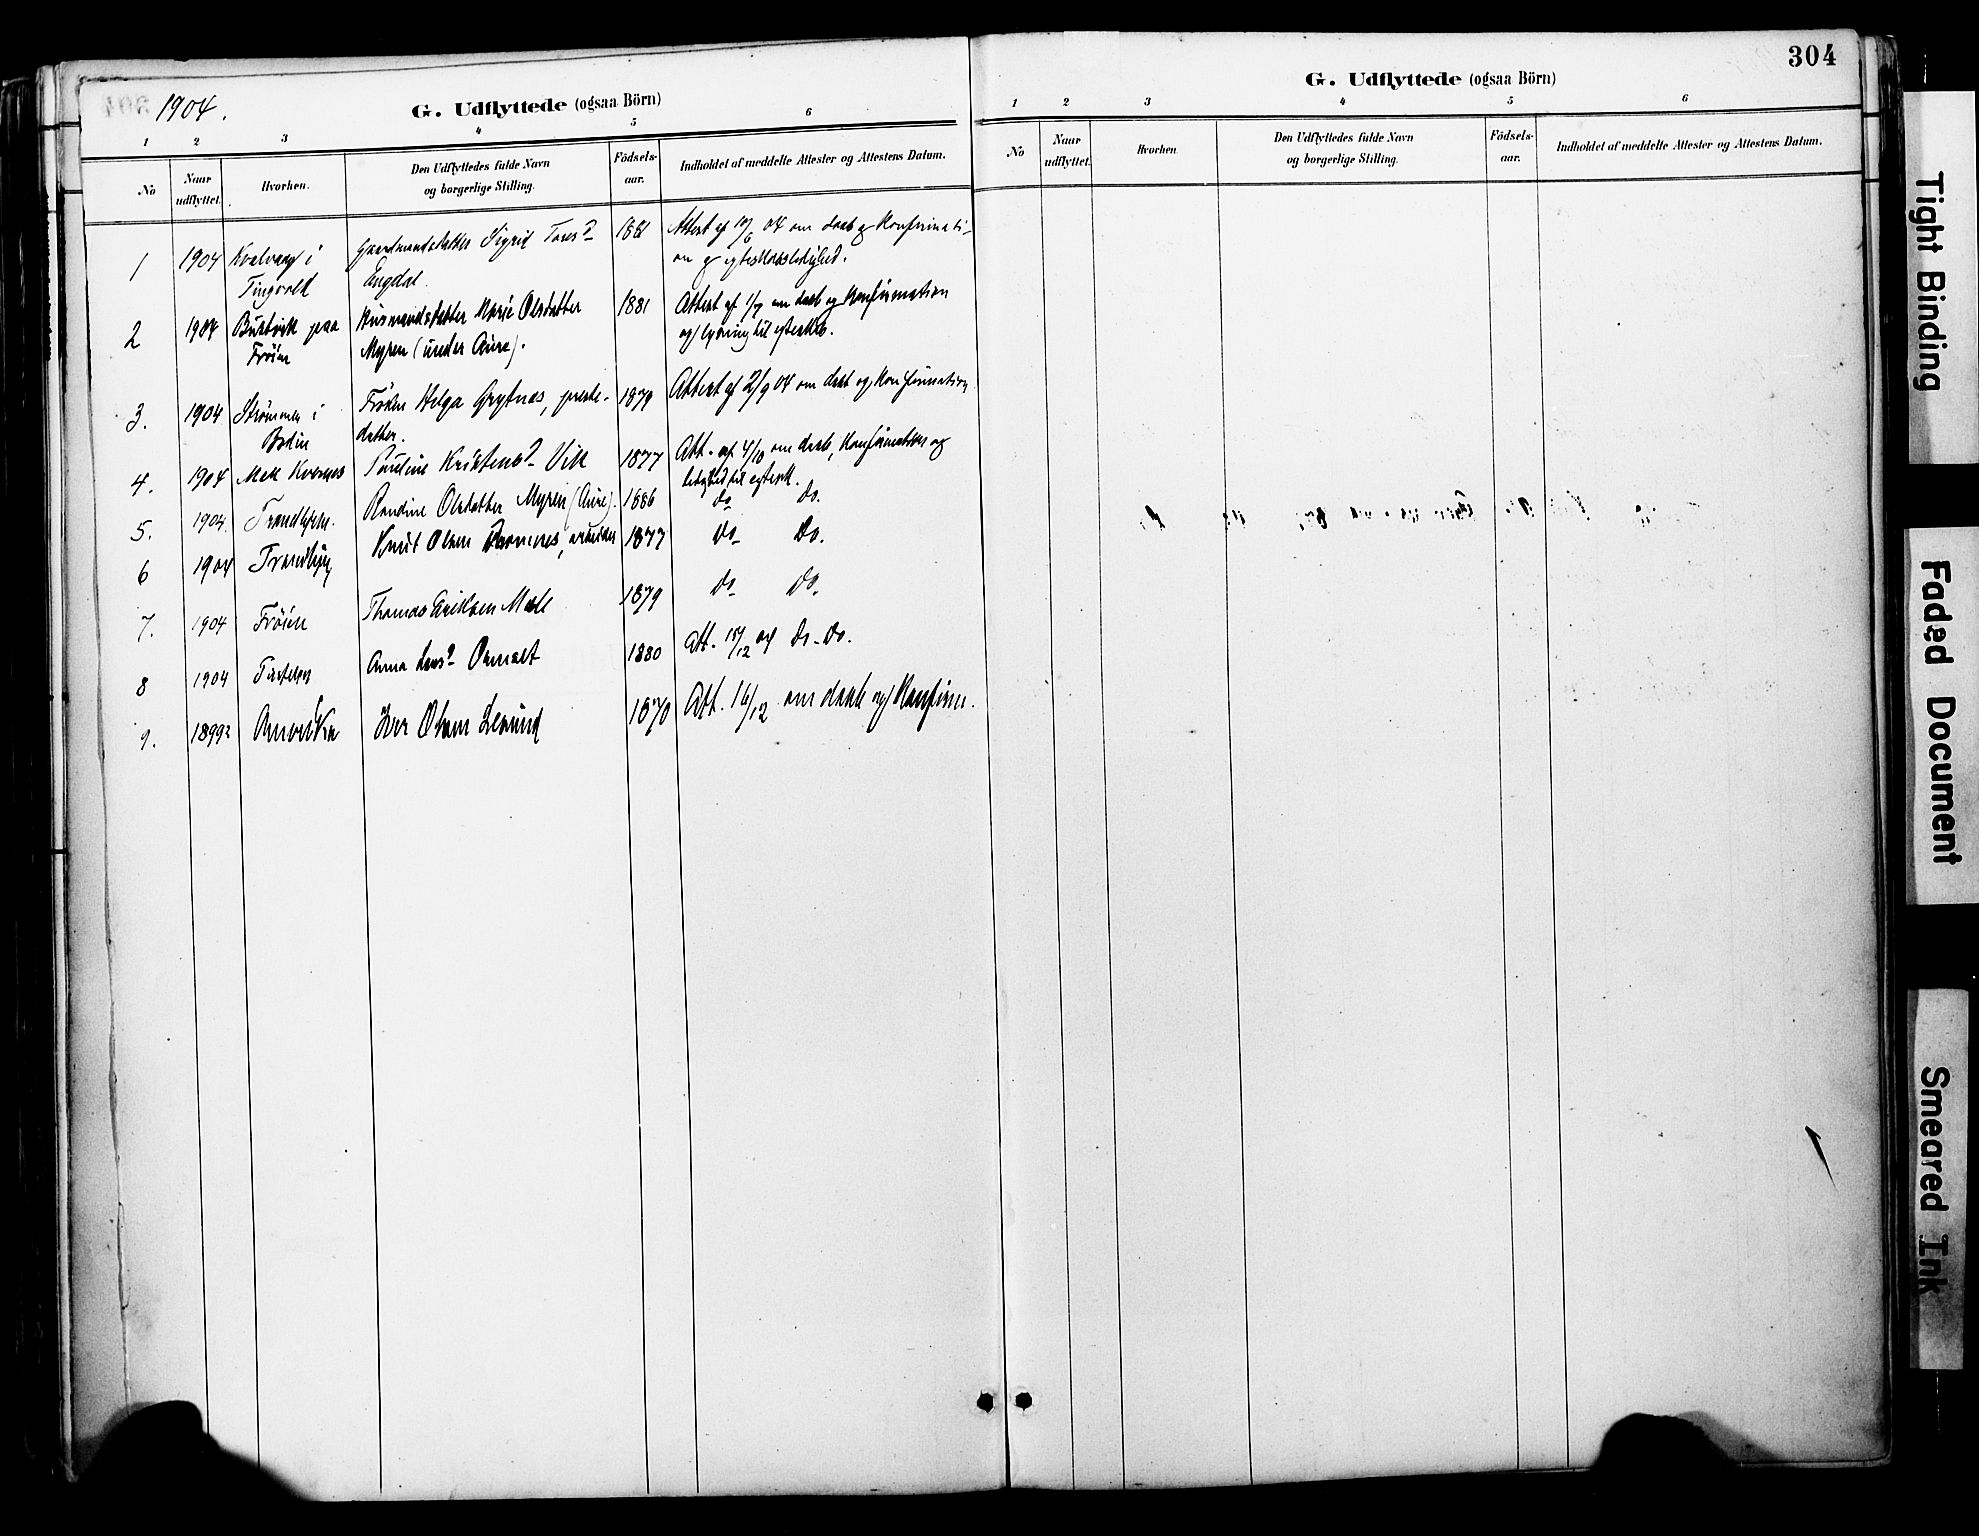 304
1904.
G. Udflyttede (ogsaa Börn)
1 2 3 4 5 6
No
Naar udflyttet.
Hvorhen.
Den Udflyttedes fulde Navn og borgerlige Stilling.
Födsels-aar.
Indholdet af meddelte Attester og Attestens Datum.
1 1904 Kvalvaag i Gaardmandsdatter Sigrid Tores 1881 Attest af 10/6 04 om daab og Konfirmati-
Tingvold Engdal. on og egteskabsledighed.
2 1904 paa Husmandsdatter Marie Olsdatter 1881 Attest af 1/7 om daab og Konfirmation
Frøien Myren (under Aure). og lysning til egteskb.
3. 1904 Strømmen i Frøken Helga Grytnæs, preste- 1879 Attest af 2/9 04 om daab og Konfirmation
Bodin datter.
4. 1904 Kvernes Pauline Kristens Vik 1877 Att. af 4/10 om daab, Konfirmation og
ledighed til egtesk.
5. 1904. Trondhjem. Randine Olsdatter Myren (Aure). 1886 do do.
6 1904 Trondhjem Knut Olsen 1877 Do Do.
7. 1904 Frøien Thomas Eriksen 1879 Do Do.
8 1904 Anna Lars 1880 Att. 12 Do Do.
9. 1899? Amerika Iver Olsen 1870 Att. 16/12 om daab og Konfirm.
G. Udflyttede (ogsaa Börn)
1 2 3 4 5 6
No
Naar udflyttet.
Hvorhen
Den Udflyttedes fulde Navn og borgerlige Stilling.
Födsels-aar.
Indholdet af meddelte Attester og Attestens Datum.
Tight Binding
Faded Document
Smeared Ink